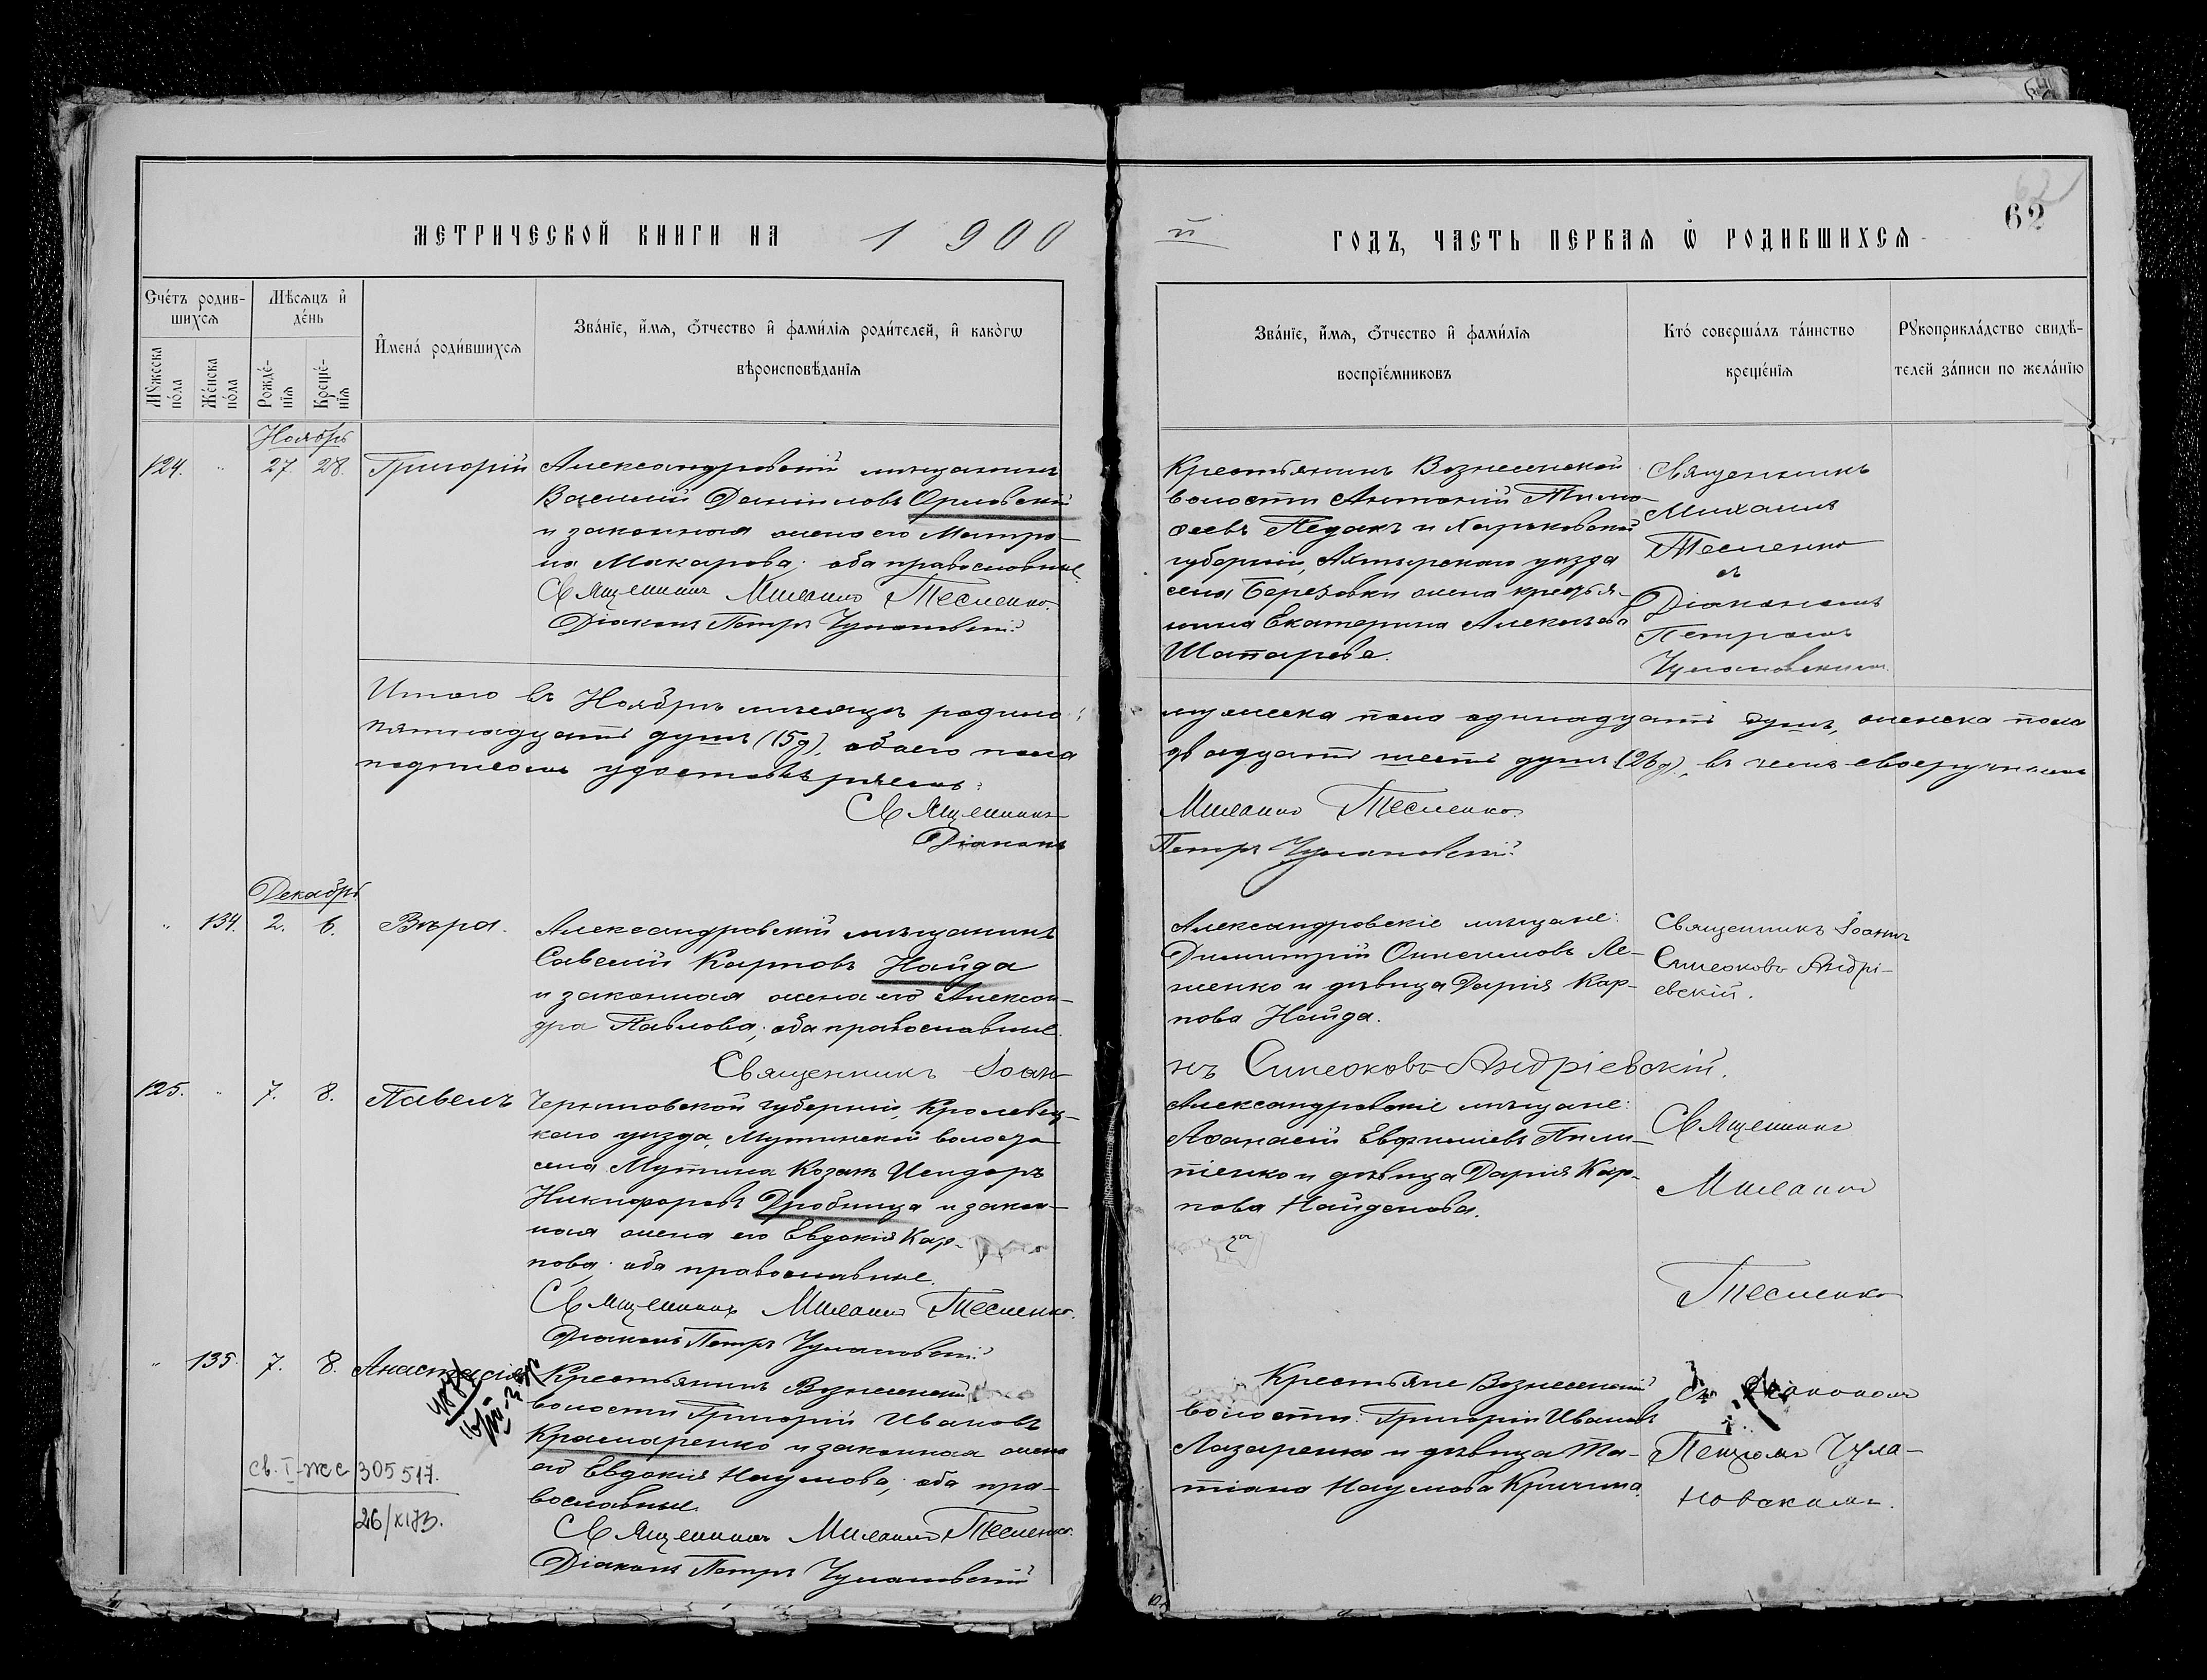 62
МЕТРИЧЕСКОЙ КНИГИ НА 1900
й ГОДЪ, ЧАСТЬ ПЕРВАЯ Ѡ РОДИВШИХСЯ
62
Счéтъ родив-
шихся
Мѣсяцъ и
дéнь
Мужеска
пола
Женска
пола
Рождé-
нія
Крещé-
нія
Имена́ роди́вшихся
Зва́ніе, и́мя, ѻтчество и фами́лія роди́телей, и како́гѡ
вѣроисповѣданія
Зва́ніе, и́мя, ѻтчество и фами́лія
воспріе́мниковъ
Кто́ соверша́лъ та́инство
креще́нія
Рꙋкоприкла́дство свидѣ-
телей за́писи по жела́нію
Ноябрь
124. " 27. 28. Григорій
Александровскій мѣщанинъ
Василій Даніиловъ Орловскій
и законная жена его Матро-
на Макарова; оба православные.
Священникъ Михаилъ Тесленко.
Діаконъ Петръ Чулановскій
Крестьянинъ Вознесенской
волости Антоній Тимо-
ѳеевъ Педакъ и Харьковской
губерніи, Ахтырскаго уѣзда
села Березовки жена крестья-
нина Екатерина Алексѣева
Шапарева.
Священникъ
Михаилъ
Тесленко
съ
Діакономъ
Петромъ
Чулановскимъ.
Итого въ Ноябрѣ мѣсяцѣ родило:
мужеска пола одинадцать душъ, женска пола
пятнадцать душъ (15д), обоего пола
двадцать шесть душъ (26д), въ чемъ своеручнымъ
подписомъ удостовѣряемъ:
Священникъ
Михаилъ Тесленко.
Діаконъ
Петръ Чулановскій.
Декабрь
" 134. 2. 6. Вѣра.
Александровскій мѣщанинъ
Савелій Карповъ Найда
и законная жена его Алексан-
дра Павлова; оба православные.
Священникъ Іоан-
Александровскіе мѣщане:
Димитрій Онисимовъ Ле-
женко и дѣвица Дарія Кар-
пова Найда.
нъ Симеоновъ Андріевскій.
Священникъ Іоаннъ
Симеоновъ Андрі-
евскій.
125. " 7. 8. Павелъ
Черниговской губерніи, Кролевец-
каго уѣзда, Мутинской волости
села Мутина Козакъ Исидоръ
Никифоровъ Дробница и закон-
ная жена его Евдокія Кар-
пова; оба православные.
Священникъ Михаилъ Тесленко.
Діаконъ Петръ Чулановскій
Александровскіе мѣщане:
Аѳанасій Евфиміевъ Пили-
пенко и дѣвица Дарія Кар-
пова Найденова.
Священникъ
Михаилъ
Тесленко
" 135. 7. 8. Анастасія
Крестьянинъ Вознесенской
волости Григорій Ивановъ
Крамаренко и законная жена
его Евдокія Наумова; оба пра-
вославные.
Священникъ Михаилъ Тесленко.
Діаконъ Петръ Чулановскій
Крестьяне Вознесенской
волости: Григорій Ивановъ
Лазаренко и дѣвица Та-
тіана Наумова Кричина.
Съ Діакономъ
Петромъ Чула-
новскимъ.
св. I-ЖС 305517.
26/XI 73.